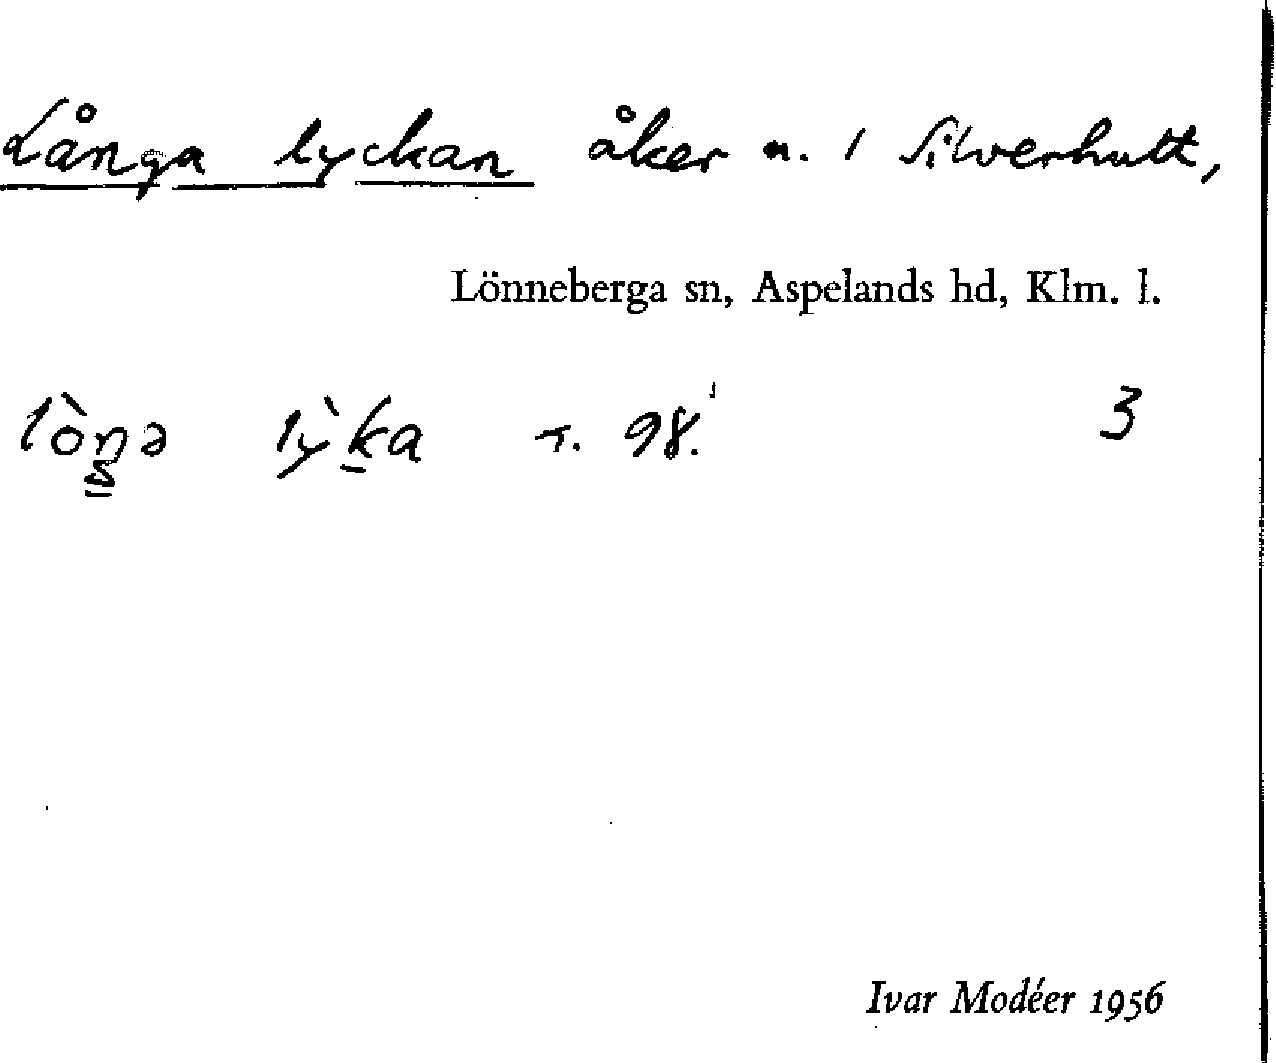 Långa lyckan åker n. 1 Silverhult,
Lönneberga sn, Aspelands hd, Klm. l.
lòŋə lỳka т. 98. 3
Ivar Modéer 1956